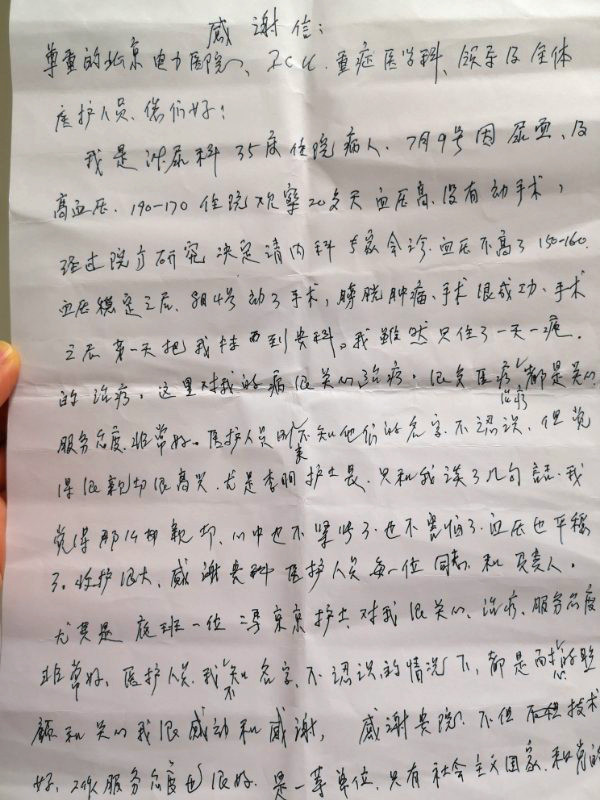 感谢信:
尊重的北京电力医院、ICU.重症医学科、领导及全体
医护人员、您们好:
我是泌尿科35床住院病人、7月9号因尿血、及
高血压、190-170住院观察20多天血压高、没有动手术,
经过院方研究决定请内科专家会诊.血压不高了150-160.
血压稳定之后、8月4号动了手术,膀胱肿瘤、手术很成功、手术
之后第一天把我转到贵科。我虽然只住了一天一夜.
的治疗。这里对我的病很关心治疗。很负医疗都是关心
治疗
服务态度、非常好。医护人员不知他们的名字、不认识、但觉
得很亲切很高兴.尤是李明护士长.只和我谈了几句话.我
觉得那么的亲切、心中也不紧张了.也不害怕了.血压也平稳
了。收护很大、感谢贵科医护人员每一位同志、和负责人。
尤其是夜班一位冯京京护士、对我很关心、治疗、服务态度
非常好、医护人员、我不知名字、不认识的情况下、都是面的脸
颜和关心我很感动和感谢, 感谢贵院.不但技术
好、工作服务态度也很好.是一等单位.只有社会主义国家.和党的